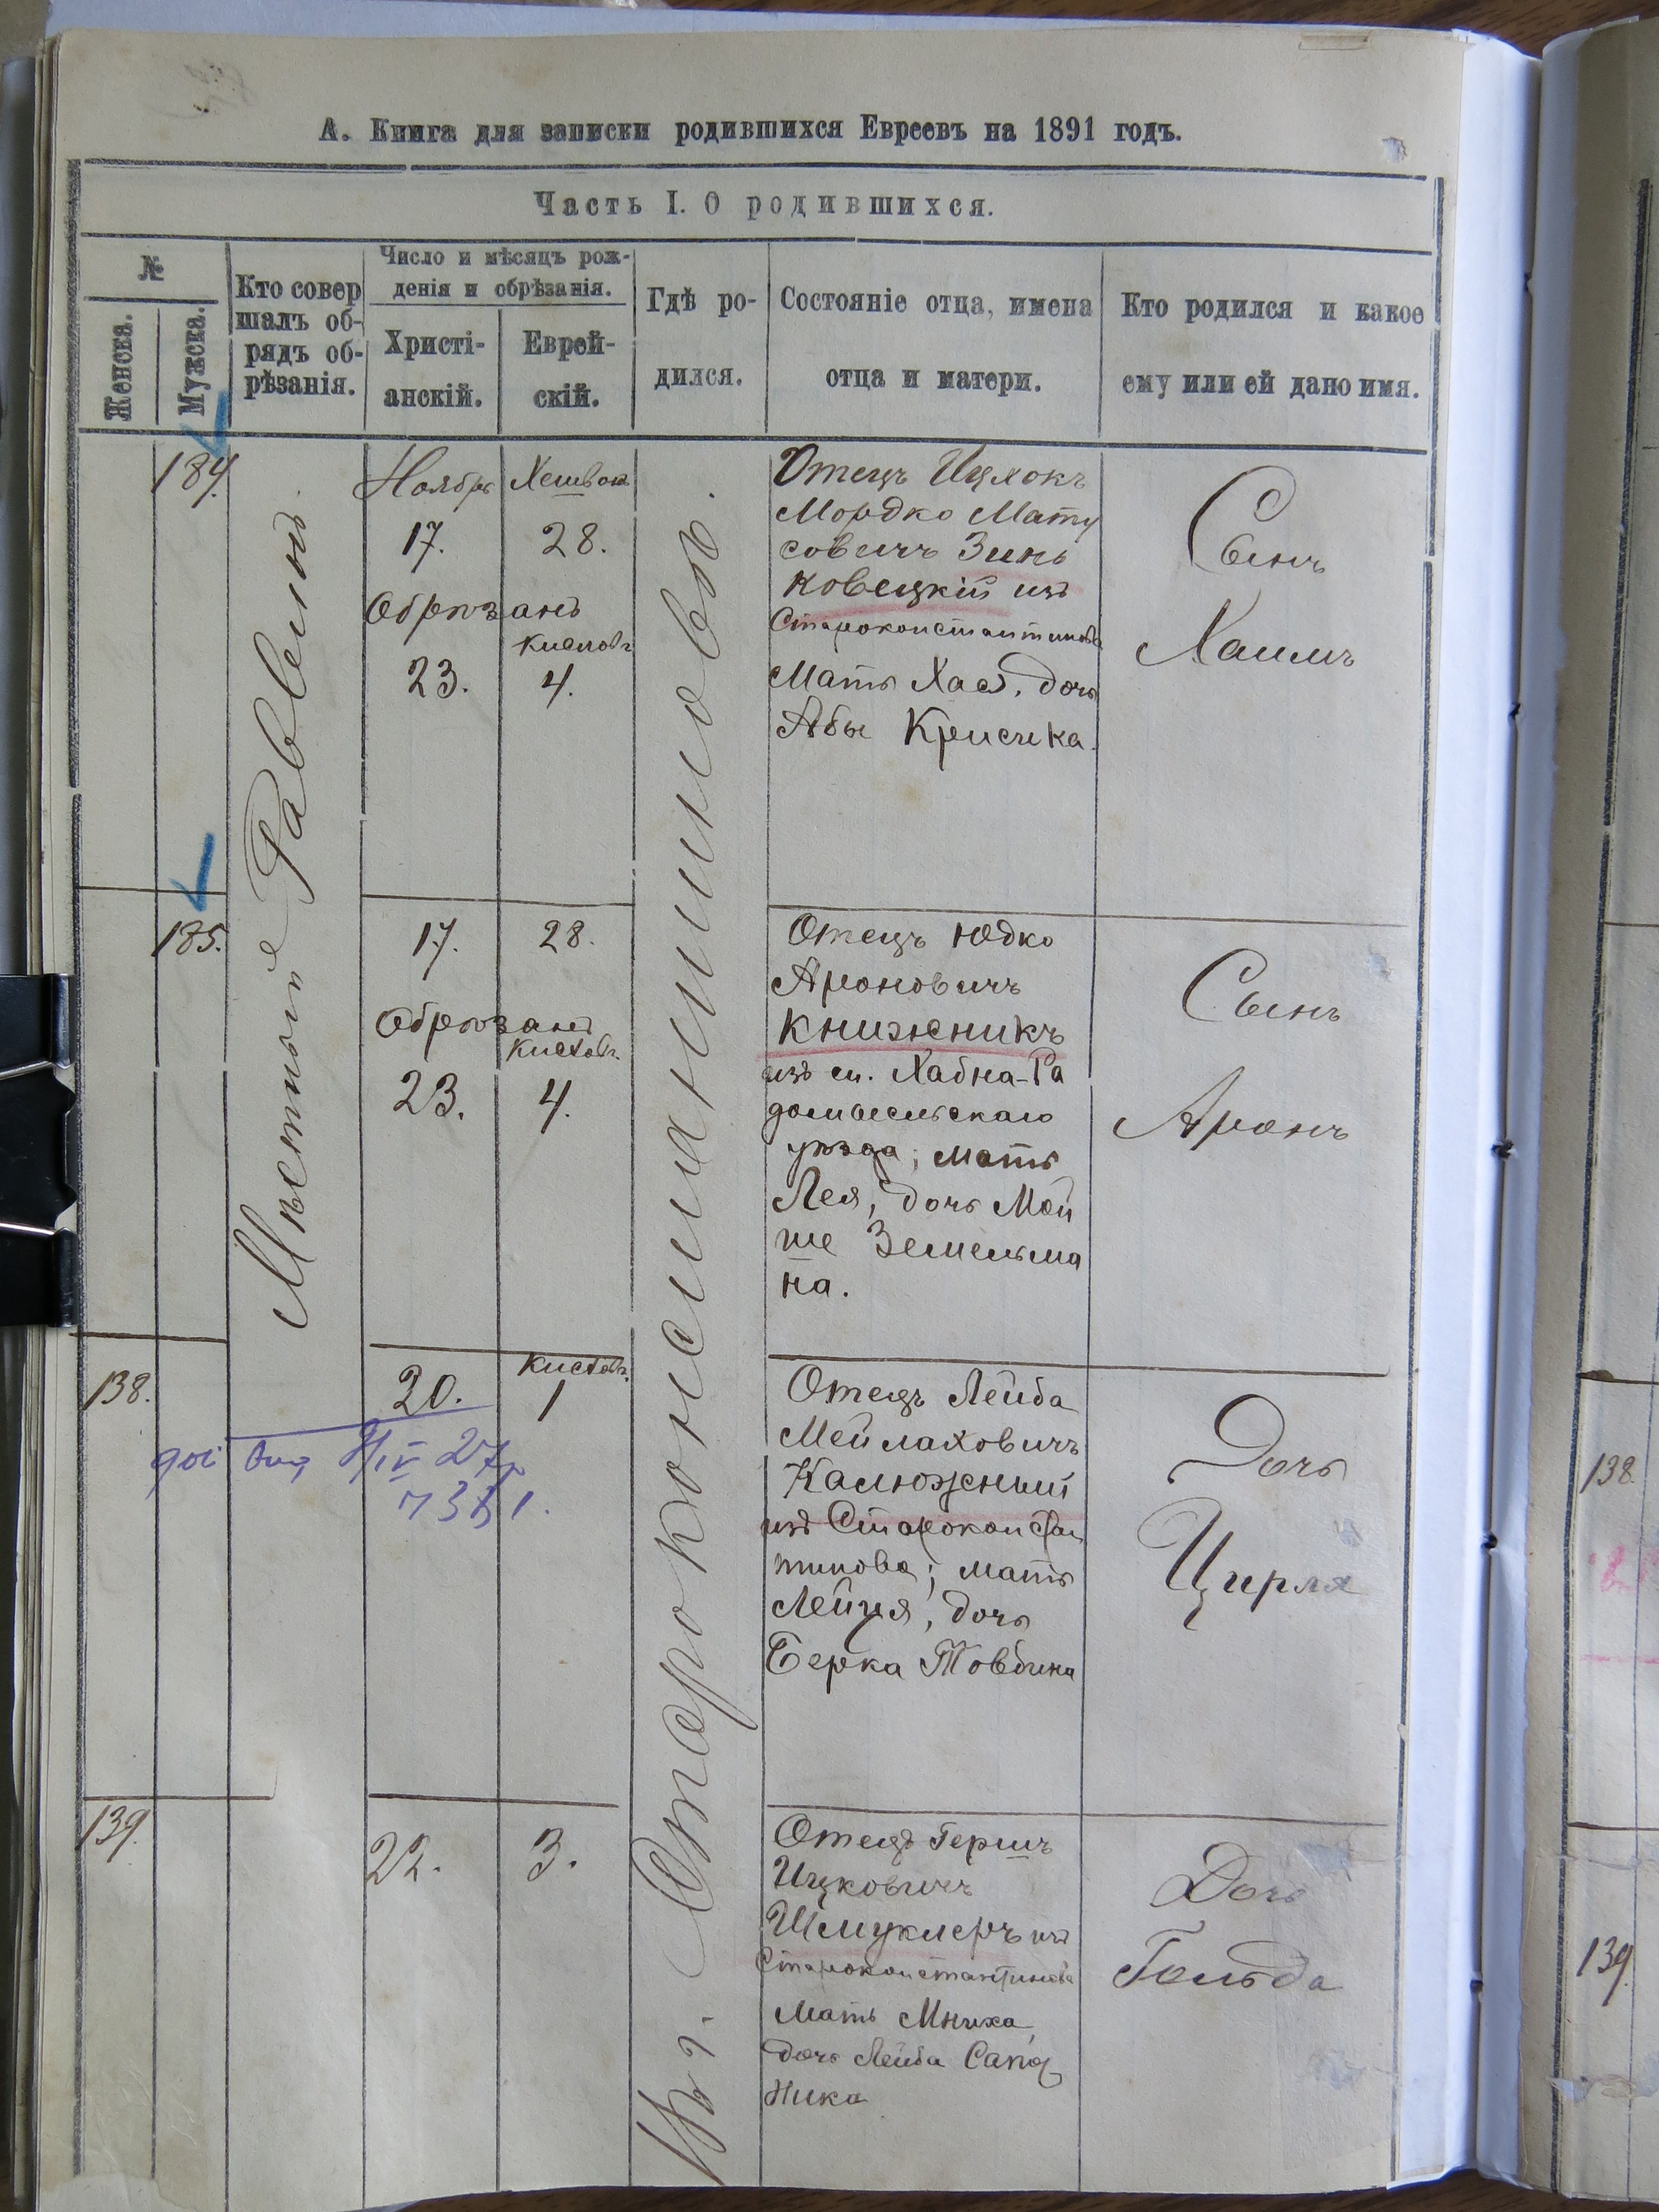 А. Книга для записки родившихся Евреевъ на 1891 годъ.
Часть I. О родившихся.
№
Женска.
Мужска.
Кто совер
шалъ об-
рядъ об-
рѣзанія.
Число и мѣсяцъ рож-
денія и обрѣзанія.
Христі-
анскій.
Еврей-
скій.
Гдѣ ро-
дился.
Состояніе отца, имена
отца и матери.
Кто родился и какое
ему или ей дано имя.
Мѣстный Раввинъ
Въ г. Староконстантиновѣ.
184.
Ноябрь
17.
Обрѣзанъ
23.
Хешвон
28.
Кисловъ
4.
Отецъ Ицхокъ
Мордко Мату
совичъ Зинь
ковецкій изъ
Староконстантинова
Мать Хая, дочь
Абы Крисчка.
Сынъ
Хаимъ
185.
17.
28.
Обрѣзанъ
Кислов.
23.
4.
Отецъ Юдко
Ароновичъ
Книжникъ
изъ м. Хабна-Ра
домысльскаго
уѣзда; мать
Лея, дочь Мой
ше Земельма
на.
Сынъ
Аронъ
138.
20.
Кислов.
1
Отецъ Лейба
Мейлаховичъ
Калюжный
изъ Староконстан
тинова; мать
Лейця, дочь
Берка Товбина
Дочь
Цирля
139.
22.
3.
Отецъ Гершъ
Ицковичъ
Шмуклеръ изъ
Староконстантинова
Мать Мниха,
дочь Лейба Сапож
ника
Дочь
Гольда
138
139.